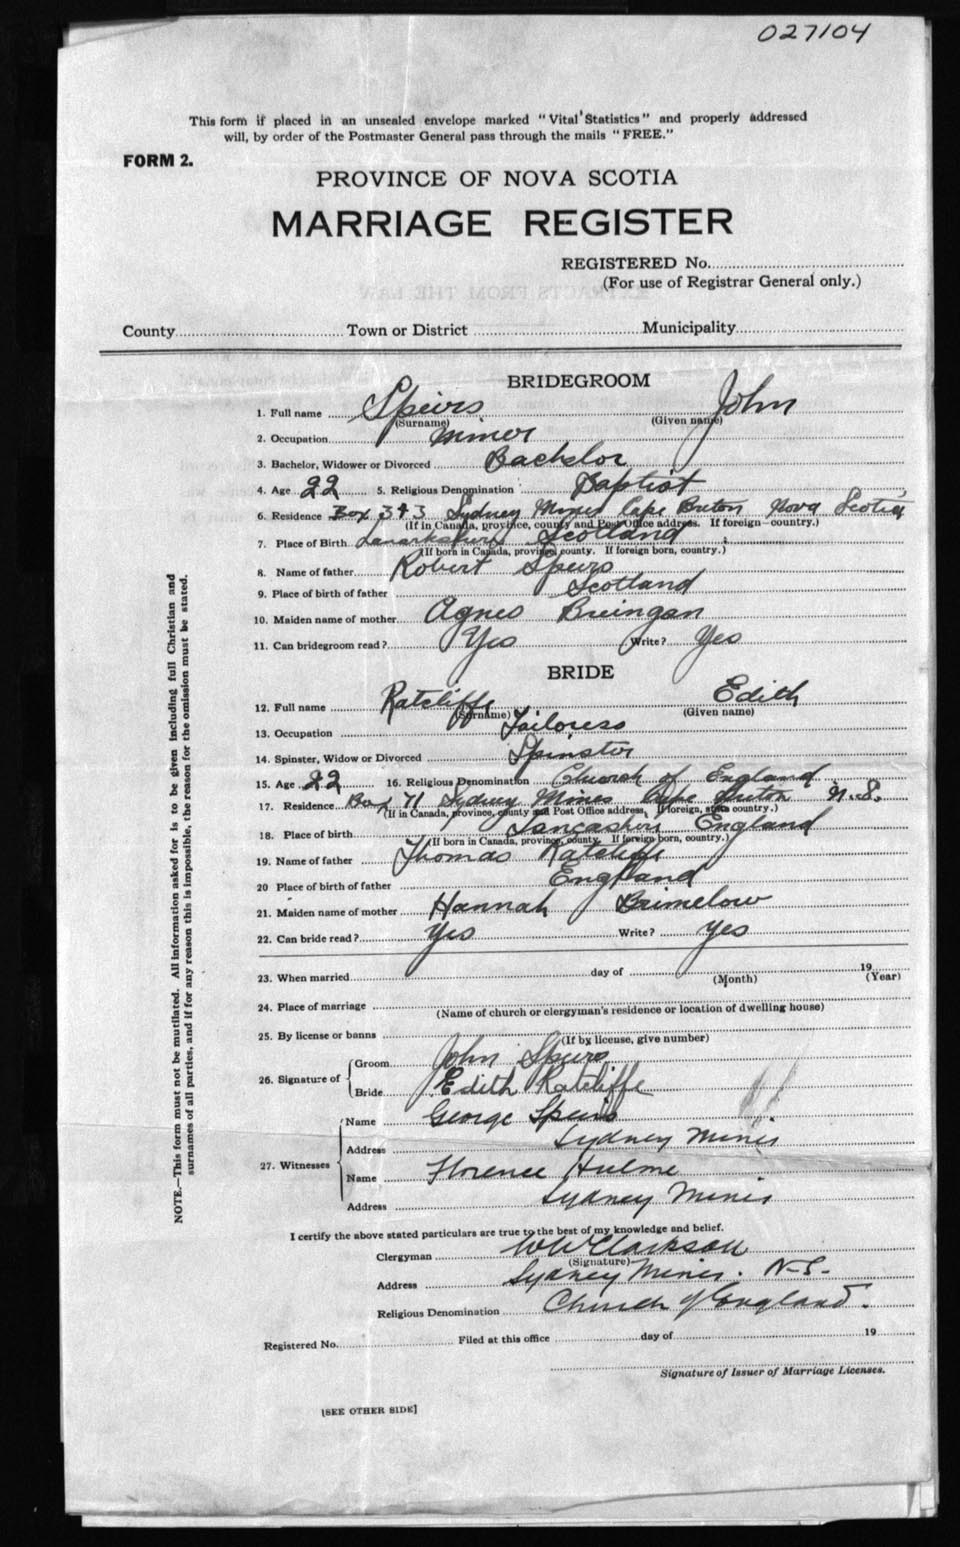 027104
This form if placed in an unsealed envelope marked "Vital Statistics" and properly addressed
will, by order of the Postmaster General pass through the mails "FREE."
FORM 2.
PROVINCE OF NOVA SCOTIA
MARRIAGE REGISTER
REGISTERED No.
(For use of Registrar General only.)
County Town or District Municipality
BRIDEGROOM
1. Full name Speirs John
(Surname) (Given name)
2. Occupation Miner
3. Bachelor, Widower or Divorced Bachelor
4. Age 22 5. Religious Denomination Baptist
6. Residence Box 343 Sydney Mines Cape Breton Nova Scotia
(If in Canada, province, county and Post Office address. If foreign—country.)
7. Place of Birth Lanarkshire Scotland
(If born in Canada, province, county. If foreign born, country.)
8. Name of father Robert Speirs
9. Place of birth of father Scotland
10. Maiden name of mother Agnes Breingan
11. Can bridegroom read? Yes Write? Yes
BRIDE
12. Full name Ratcliffe Edith
(Surname) (Given name)
13. Occupation Tailoress
14. Spinster, Widow or Divorced Spinster
15. Age 22 16. Religious Denomination Church of England
17. Residence Box 71 Sydney Mines Cape Breton N.S.
(If in Canada, province, county and Post Office address, If foreign, state country.)
18. Place of birth Lancashire England
(If born in Canada, province, county. If foreign born, country.)
19. Name of father Thomas Ratcliffe
20 Place of birth of father England
21. Maiden name of mother Hannah Brimelow
22. Can bride read? Yes Write? Yes
23. When married day of 19
(Month) (Year)
24. Place of marriage
(Name of church or clergyman's residence or location of dwelling house)
25. By license or banns
(If by license, give number)
26. Signature of Groom John Speirs
Bride Edith Ratcliffe
27. Witnesses Name George Speirs
Address Sydney Mines
Name Florence Hulme
Address Sydney Mines
I certify the above stated particulars are true to the best of my knowledge and belief.
Clergyman WW Clarkson
(Signature)
Address Sydney Mines. N.S.
Religious Denomination Church of England.
Registered No. Filed at this office day of 19
Signature of Issuer of Marriage Licenses.
[SEE OTHER SIDE]
NOTE.—This form must not be mutilated. All information asked for is to be given including full Christian and
surnames of all parties, and if for any reason this is impossible, the reason for the omission must be stated.